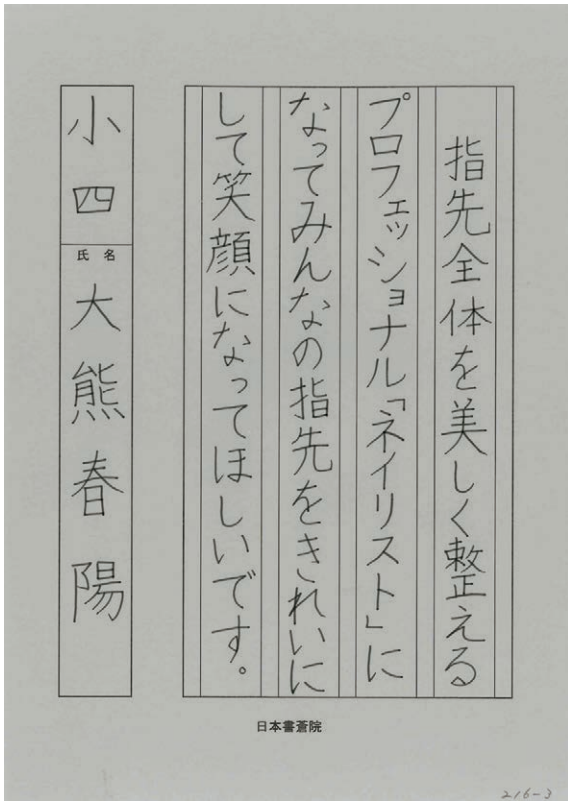 指先全体を美しく整える
プロフェッショナル「ネイリスト」に
なってみんなの指先をきれいに
して笑顔になってほしいです。
小四
氏名
大熊春陽
日本書蒼院
216-3